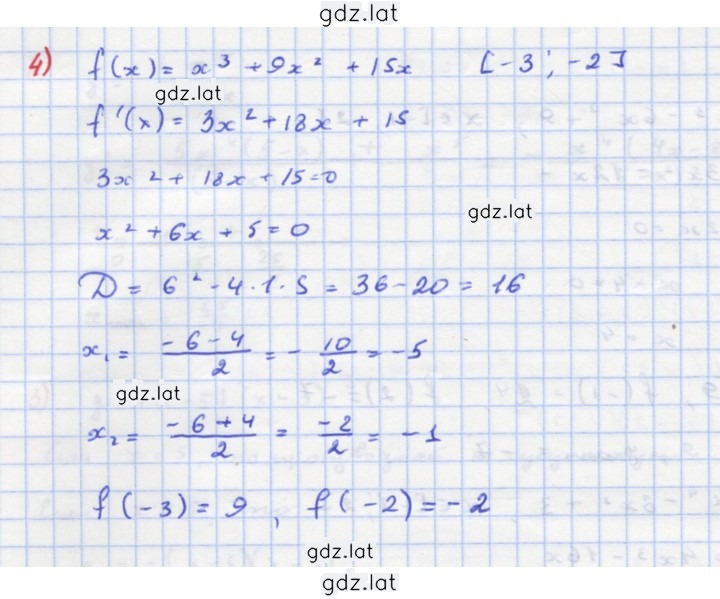 gdz.lat
4) f(x) = x³ + 9x² + 15x [-3; -2]
gdz.lat
f'(x) = 3x² + 18x + 15
3x² + 18x + 15 = 0
gdz.lat
x² + 6x + 5 = 0
D = 6² - 4·1·5 = 36 - 20 = 16
x₁ = (-6-4)/2 = -10/2 = -5
gdz.lat
x₂ = (-6+4)/2 = -2/2 = -1
f(-3) = 9, f(-2) = -2
gdz.lat
gdz.lat